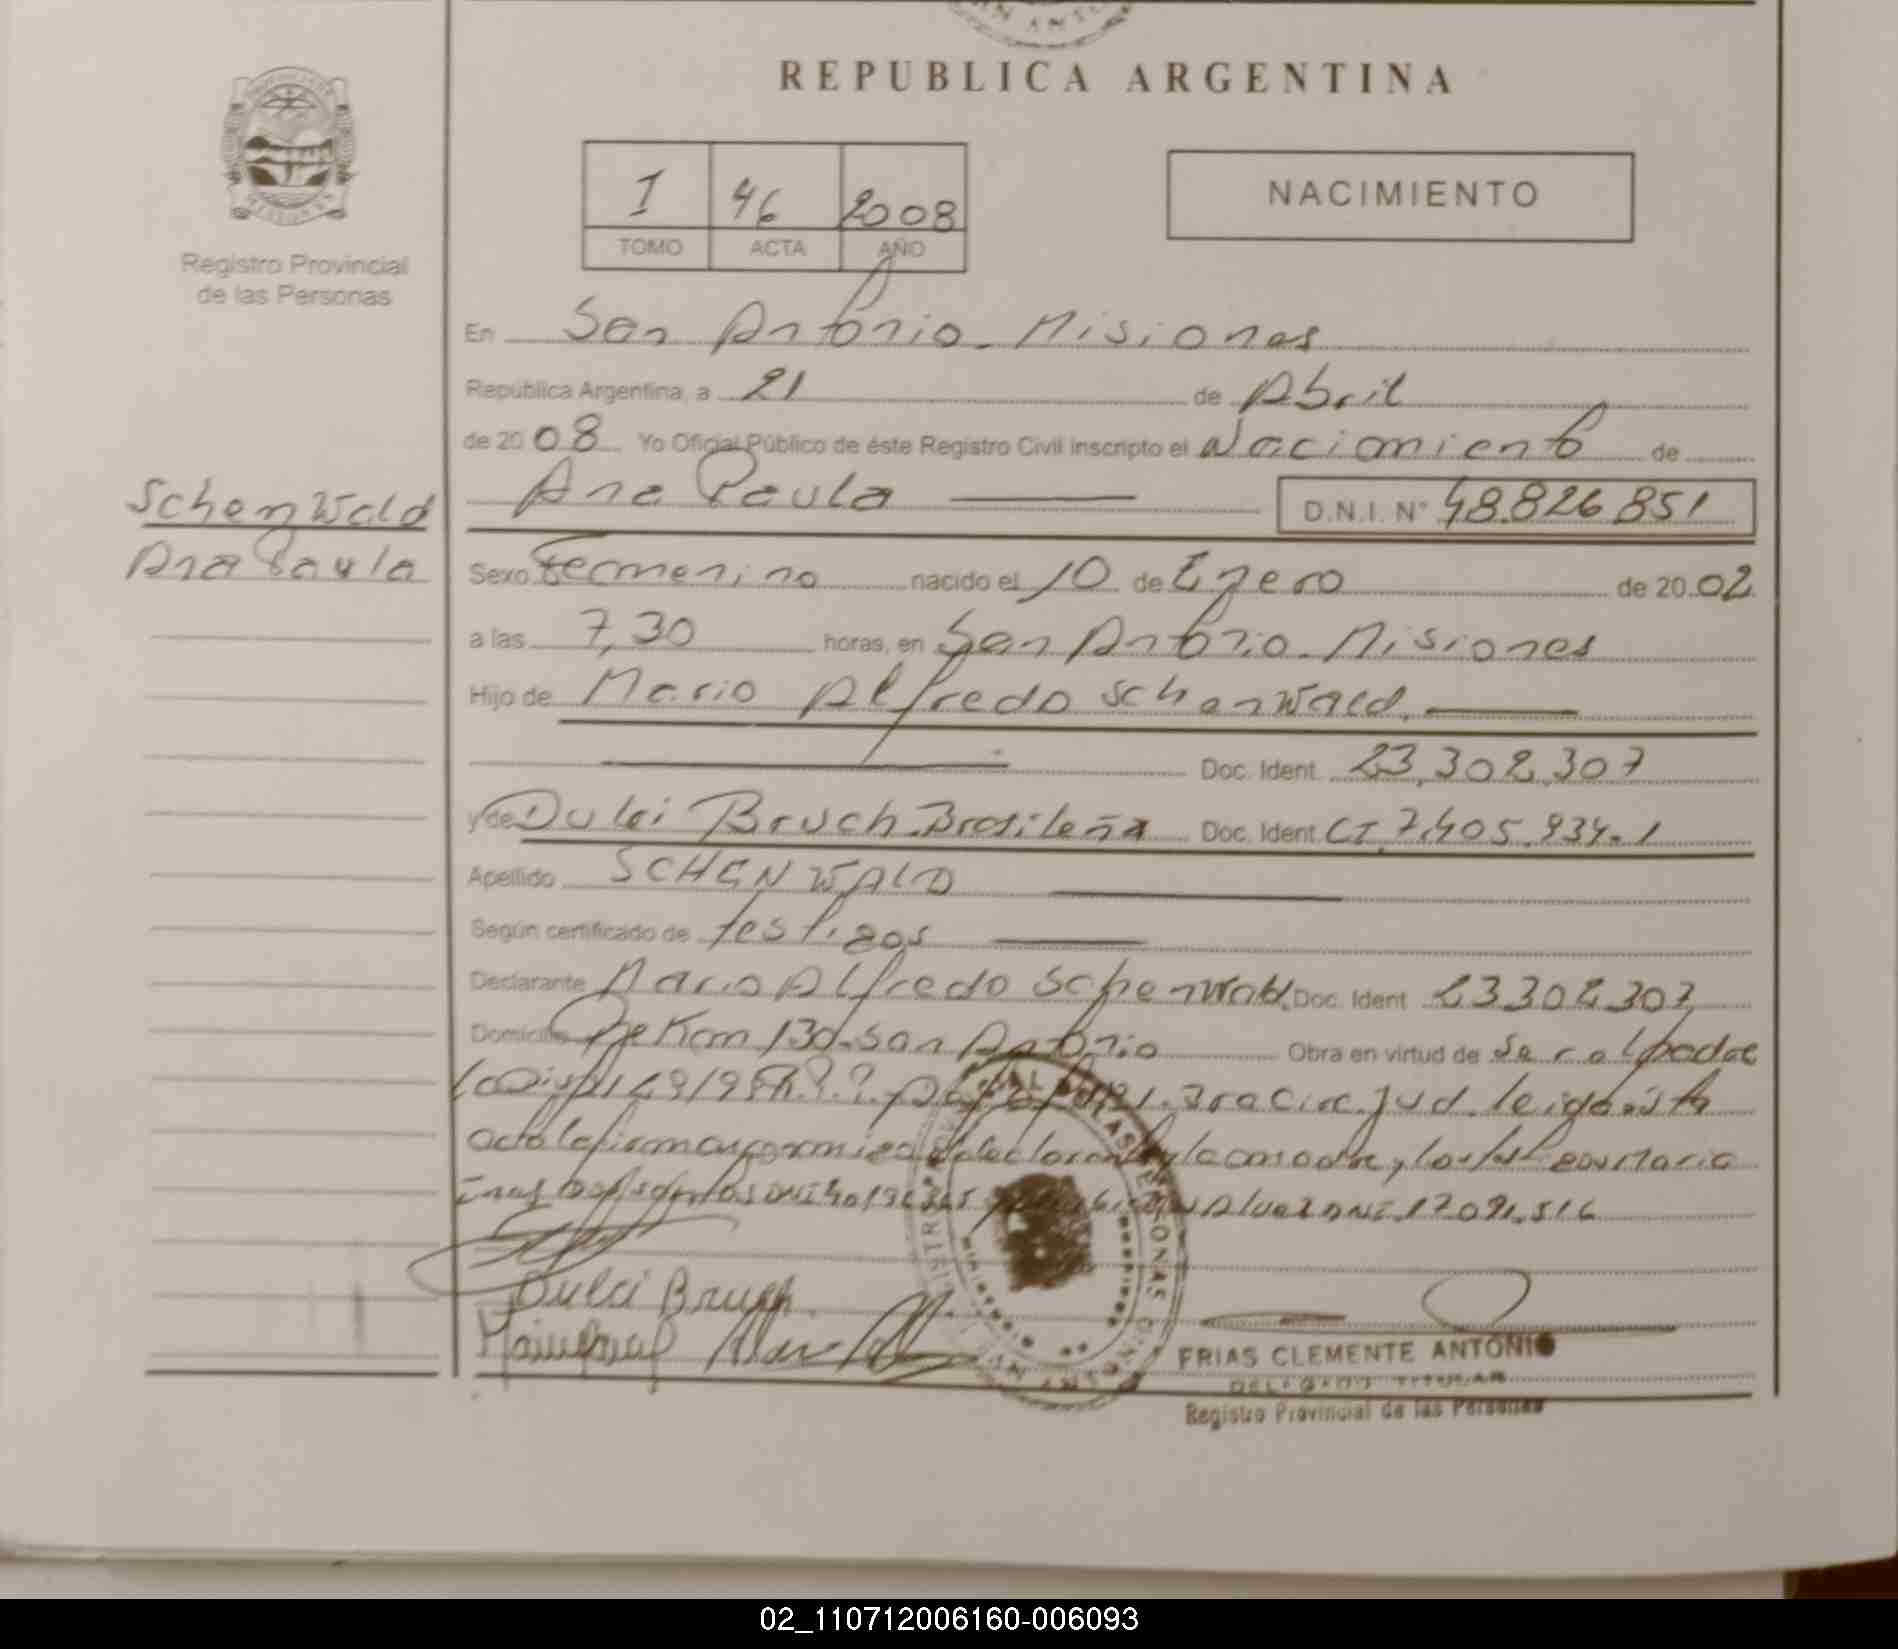 REPUBLICA ARGENTINA
I 46 2008
TOMO ACTA AÑO
NACIMIENTO
Registro Provincial
de las Personas
En San Antonio - Misiones
República Argentina, a 21 de Abril
de 2008 Yo Oficial Público de éste Registro Civil inscripto el Nacimiento de
Ana Paula D.N.I. N° 48.826.851
Schenwald
Ana Paula
Sexo Femenino nacido el 10 de Enero de 20 02
a las 7,30 horas, en San Antonio - Misiones
Hijo de Mario Alfredo Schenwald.
Doc. Ident. 23.302.307
y de Dulci Bruch. Brasileña Doc. Ident. CI 7.405.934-1
Apellido SCHENWALD
Según certificado de testigos
Declarante Mario Alfredo Schenwald. Doc. Ident. 23302307
Domicilio Km 130. San Antonio Obra en virtud de
jud. leida
acta la firman
17.091.516
Dulci Bruch.
FRIAS CLEMENTE ANTONIO
DELEGADO TITULAR
Registro Provincial de las Personas
02_110712006160-006093